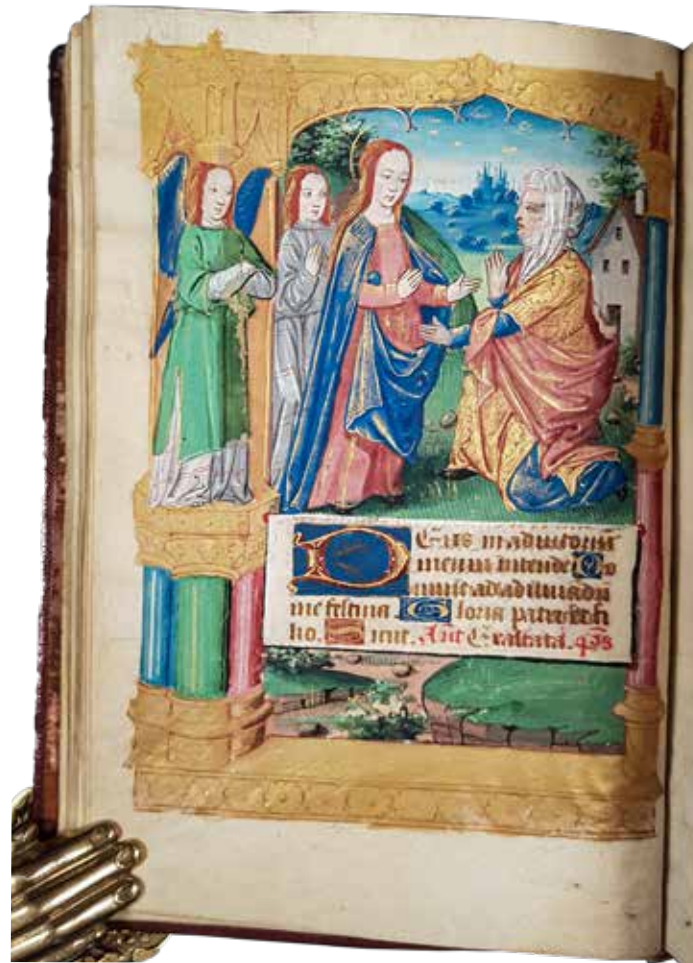 DEus in adiutoriū
meum intende Do
mine ad adiuuandū
me festina. Gloria patri et fi
lio. Sicut. Ant Exaltata. ps